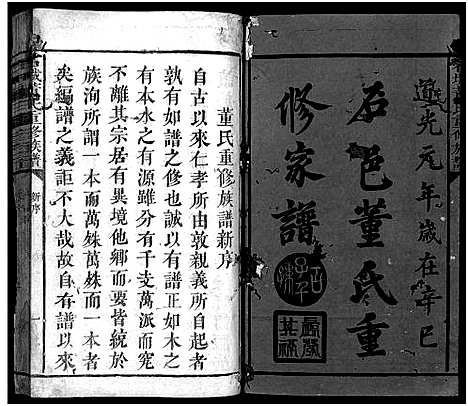 道光元年歲在辛巳
石邑董氏重
修家譜
董氏重修族譜新序
自古以來仁孝所由敦親義所自起者
孰有如譜之修也誠以有譜正如木之
有本水之有源雖分有千支萬派而究
不離其宗居有異境他鄉而要皆統於
族洵所謂一本而萬殊萬殊而一本者
矣編譜之義詎不大哉故自有譜以來
新序